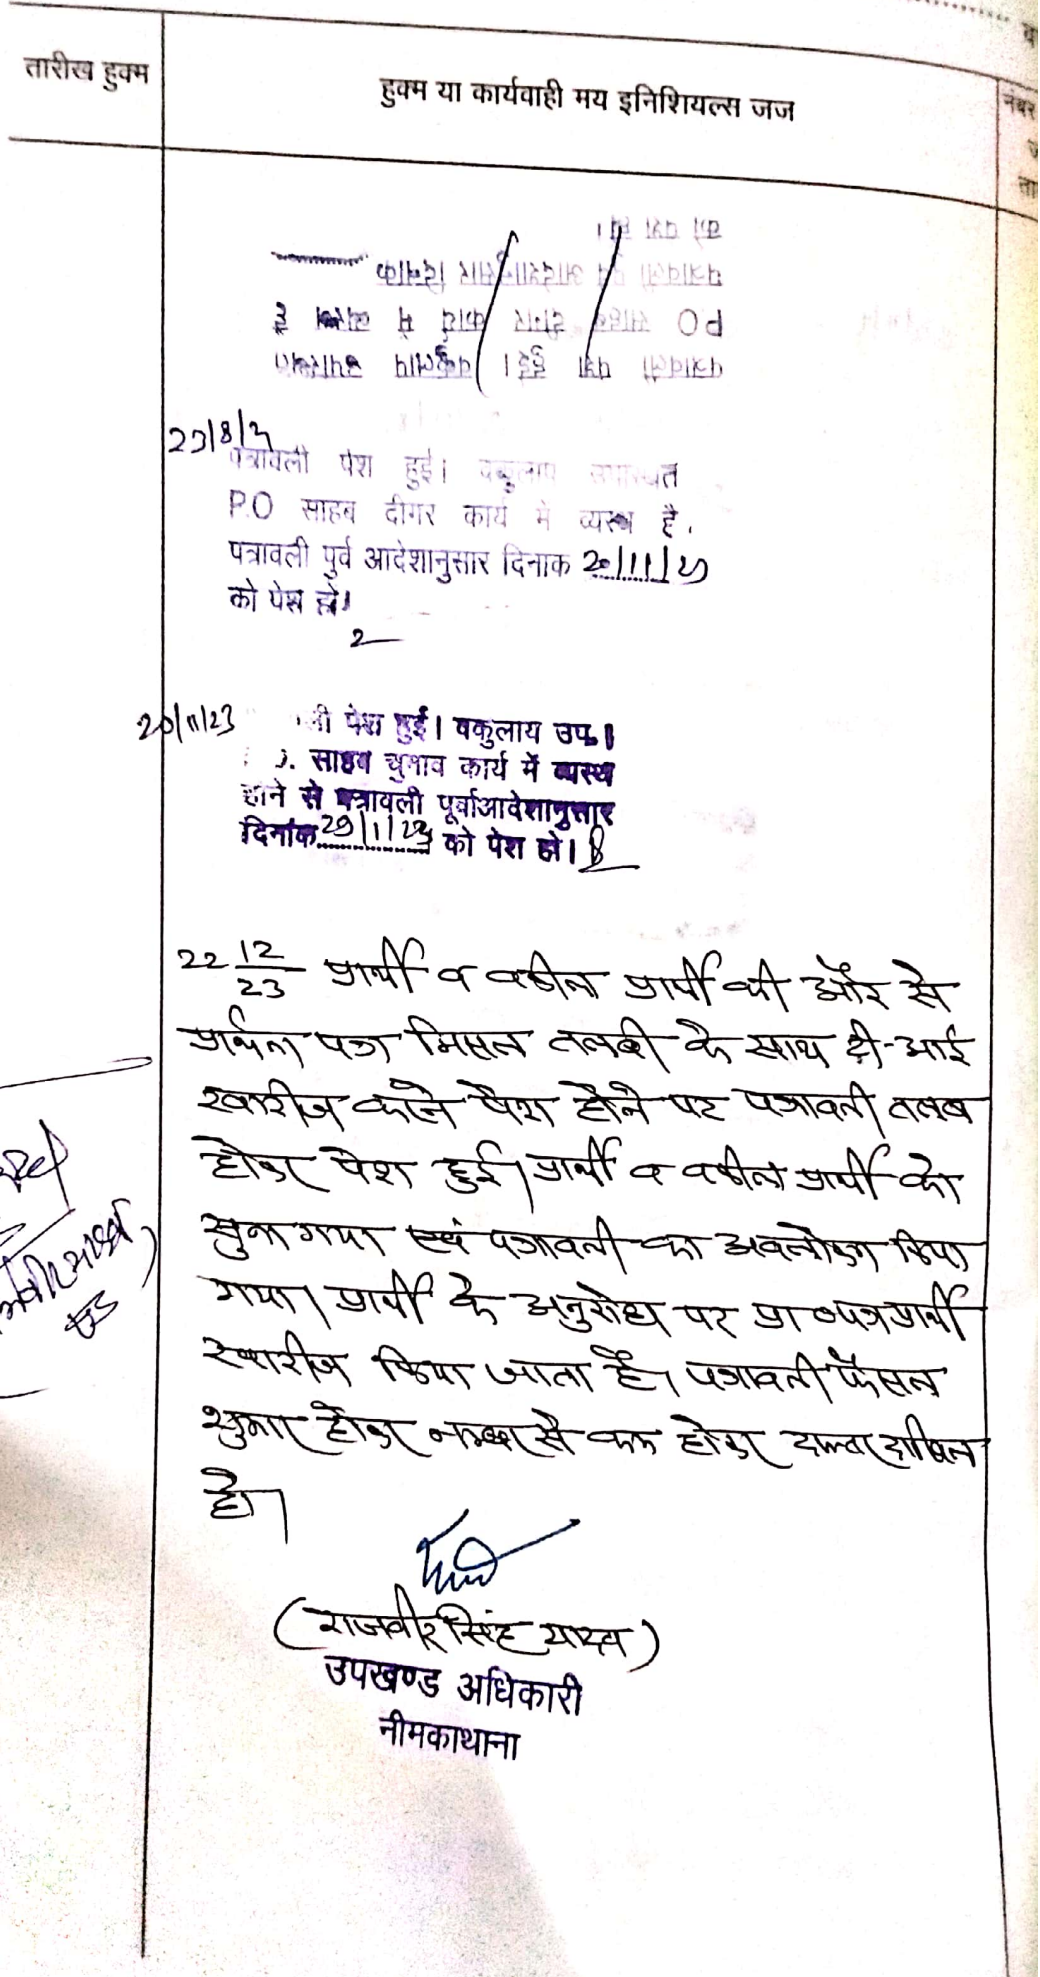 तारीख हुक्म
हुक्म या कार्यवाही मय इनिशियल्स जज
नंबर
ता
पत्रावली पेश हुई। वकुलाय उपस्थित
P.O साहब दीगर कार्य में व्यस्थ है
पत्रावली पुर्व आदेशानुसार दिनाक
को पेश हो।
23/8/23
पत्रावली पेश हुई। वकुलाय उपास्थत
P.O साहब दीगर कार्य में व्यस्थ है.
पत्रावली पुर्व आदेशानुसार दिनाक 20/11/23
को पेश हो।
20/11/23
ली पेश हुई। वकुलाय उप.।
साहब चुनाव कार्य में व्यस्थ
होने से पत्रावली पूर्वाआदेशानुसार
दिनांक 29/1/ को पेश हो।
22 12/23 प्रार्थी व वकील प्रार्थी की और से
प्रार्थना पत्र मिसल तलबी के साथ टी-आई
खारीज करने पेश होने पर पत्रावली तलब
होकर पेश हुई। प्रार्थी व वकील प्रार्थी को
सुना गया एवं पत्रावली का अवलोकन किया
गया। प्रार्थी के अनुरोध पर प्रा० पत्र प्रार्थी
खारीज किया जाता है। पत्रावली फैसल
शुमार होकर नम्बर से कम होकर दफ्तर दाखिल
हो।
(राजवीर सिंह यादव)
उपखण्ड अधिकारी
नीमकाथाना